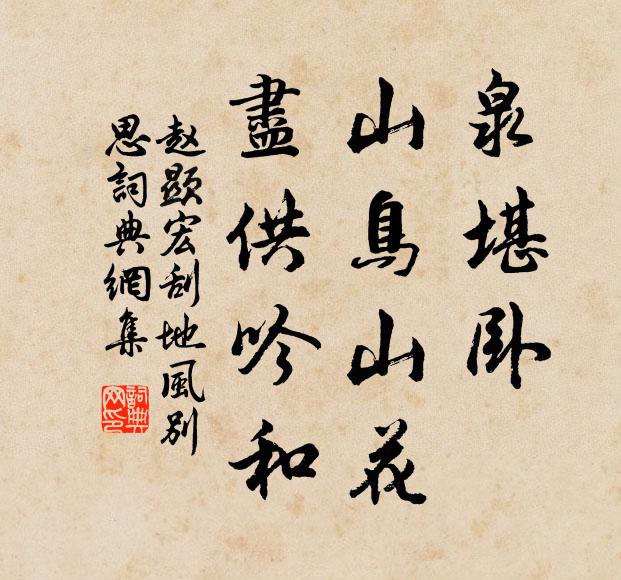 泉堪卧
山鳥山花
盡供吟和
赵顯宏刮地風别
思詞典網集
詞典
网印